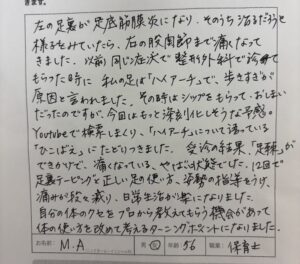 きます。
左の足裏が足底筋膜炎になり、そのうち治るだろうと
様子をみていたら、右の股関節まで痛くなって
きました。以前同じ症状で整形外科で診て
もらった時に 私の足は「ハイアーチ」で、歩きすぎが
原因と言われました。その時はシップをもらって、おしまい
だったのですが、今回はもっと深刻化しそうな予感。
Youtubeで検索しまくり、「ハイアーチ」について語っている
「ひこばえ」にたどりつきました。 受診の結果、「足棘」が
できかけで、痛くなっている、やばい状態でした。12回で
足裏テーピングと正しい足の使い方、姿勢の指導をうけ、
痛みが段々減り、日常生活が楽になりました。
自分の体のクセをプロから教えてもらう機会があって
体の使い方を改めて考えるターニングポイントになりました。
お名前: M.A 男・女 年齢 56 職業: 保育士